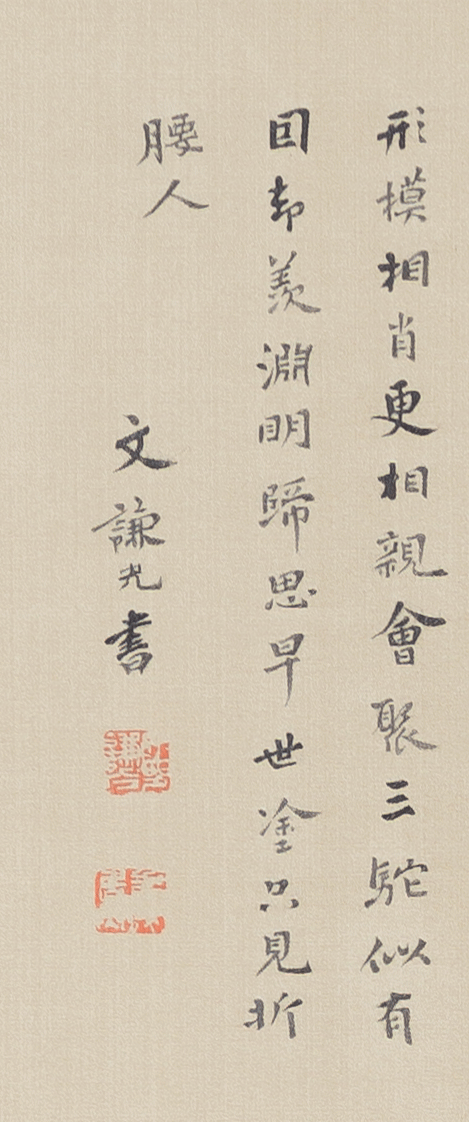 形模相肖更相親會聚三駝似有
因却羨淵明歸思早世塗只見折
腰人
文謙光書